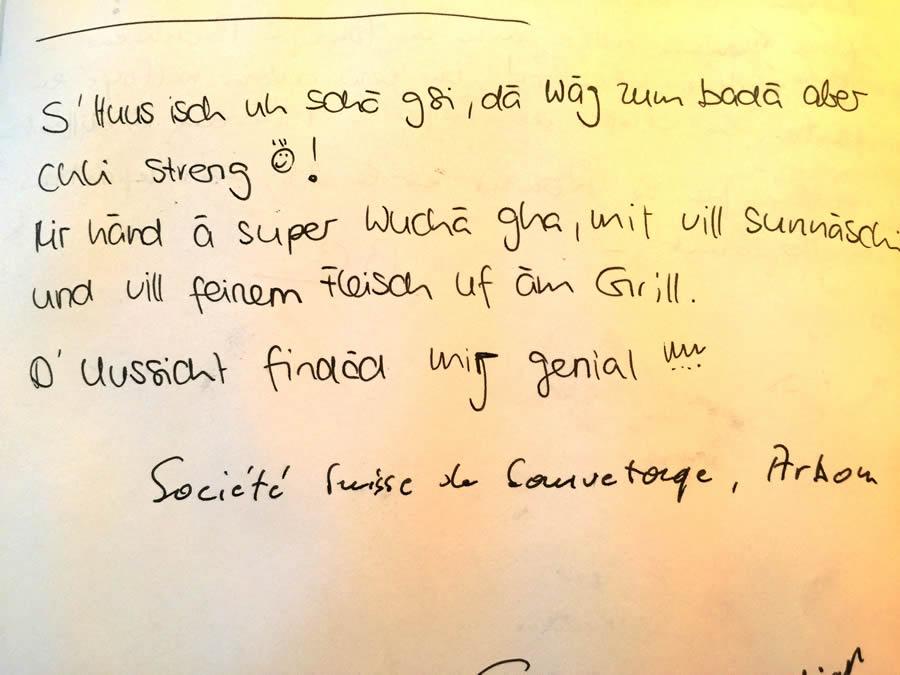 S'Huus isch uh schā gsi, dā Wāg zum badā aber
chli streng ☺!
Mir hānd ā super Wuchā gha, mit vill Sunnāschi
und vill feinem Fleisch uf ām Grill.
D'Uussicht findād mir genial !!!!
Société Suisse de Sauvetage, Arbon